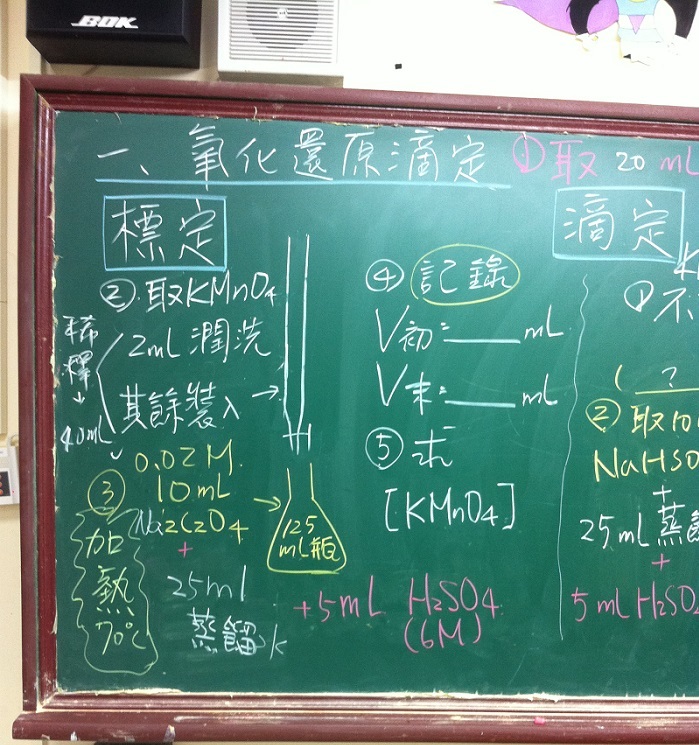 BOK
一、氧化還原滴定 ①取 20 mL
標定
②取KMnO4
2mL 潤洗
其餘裝入
稀釋
40mL
0.02M
③ 10mL
Na2C2O4
+
25ml
蒸餾水
加熱
70℃
125
mL瓶
+5mL H2SO4
(6M)
④ 記錄
V初=____mL
V末=____mL
⑤ 求
[KMnO4]
滴定
①不
( ?
②取10
NaHSO
+
25mL蒸餾
+
5mL H2SO4